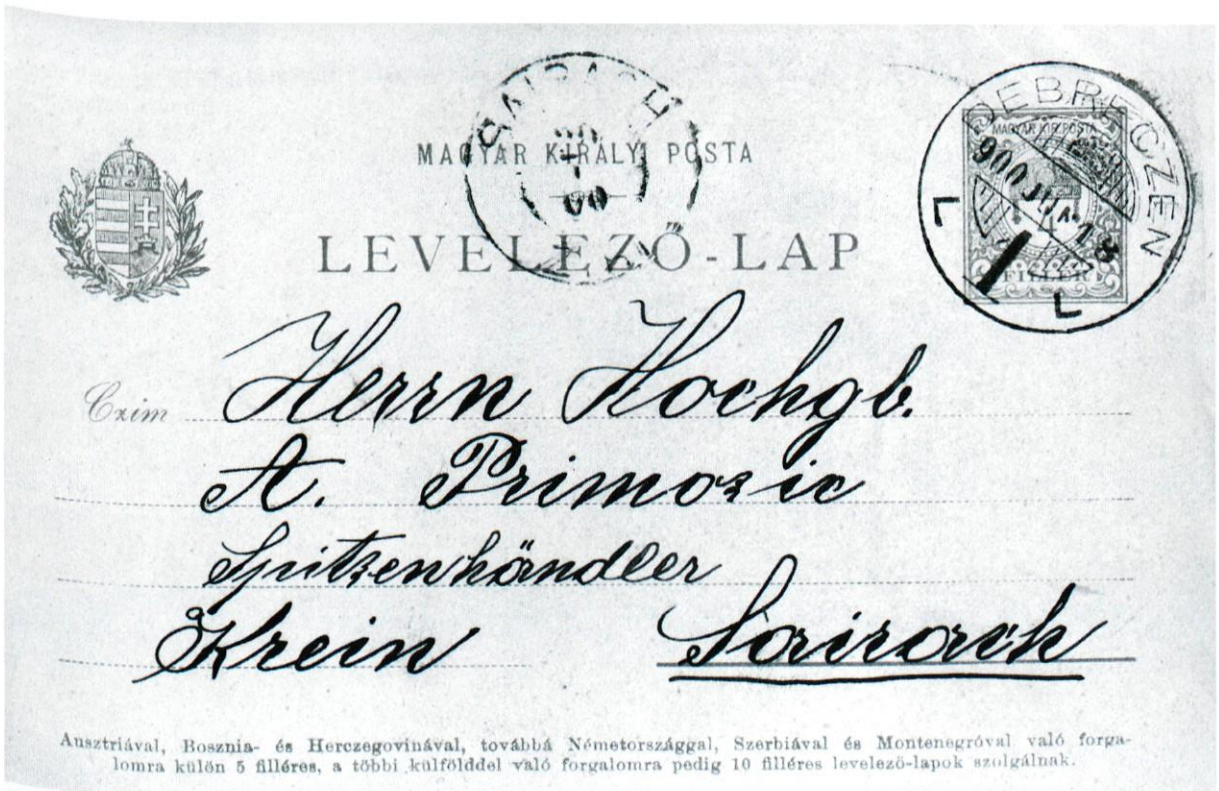 SAIRACH
00
MAGYAR KIRÁLYI POSTA
LEVELEZŐ-LAP
DEBRECZEN
MAGYAR KIR. POSTA
900 JUL
4
FILLÉR
L L
Czim Herrn Hochgb.
A. Primozic
Spitzenhändler
Krein Sairach
Ausztriával, Bosznia- és Herczegovinával, továbbá Németországgal, Szerbiával és Montenegróval való forga-
lomra külön 5 filléres, a többi külfölddel való forgalomra pedig 10 filléres levelező-lapok szolgálnak.